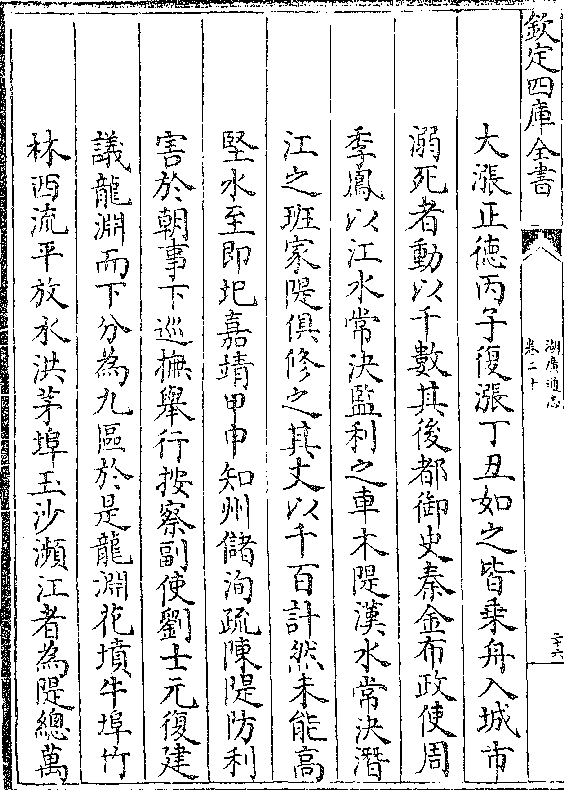 欽定四庫全書
湖廣通志
卷二十
二十六
大漲正德丙子復漲丁丑如之皆乗舟入城市
溺死者動以千數其後都御史秦金布政使周
季鳳以江水常決監利之車木隄漢水常決潛
江之班家隄俱修之其丈以千百計然未能高
堅水至即圮嘉靖甲申知州儲洵疏陳隄防利
害於朝事下巡撫舉行按察副使劉士元復建
議龍淵而下分為九區於是龍淵花墳牛埠竹
林西流平放水洪茅埠玉沙瀕江者為隄總萬